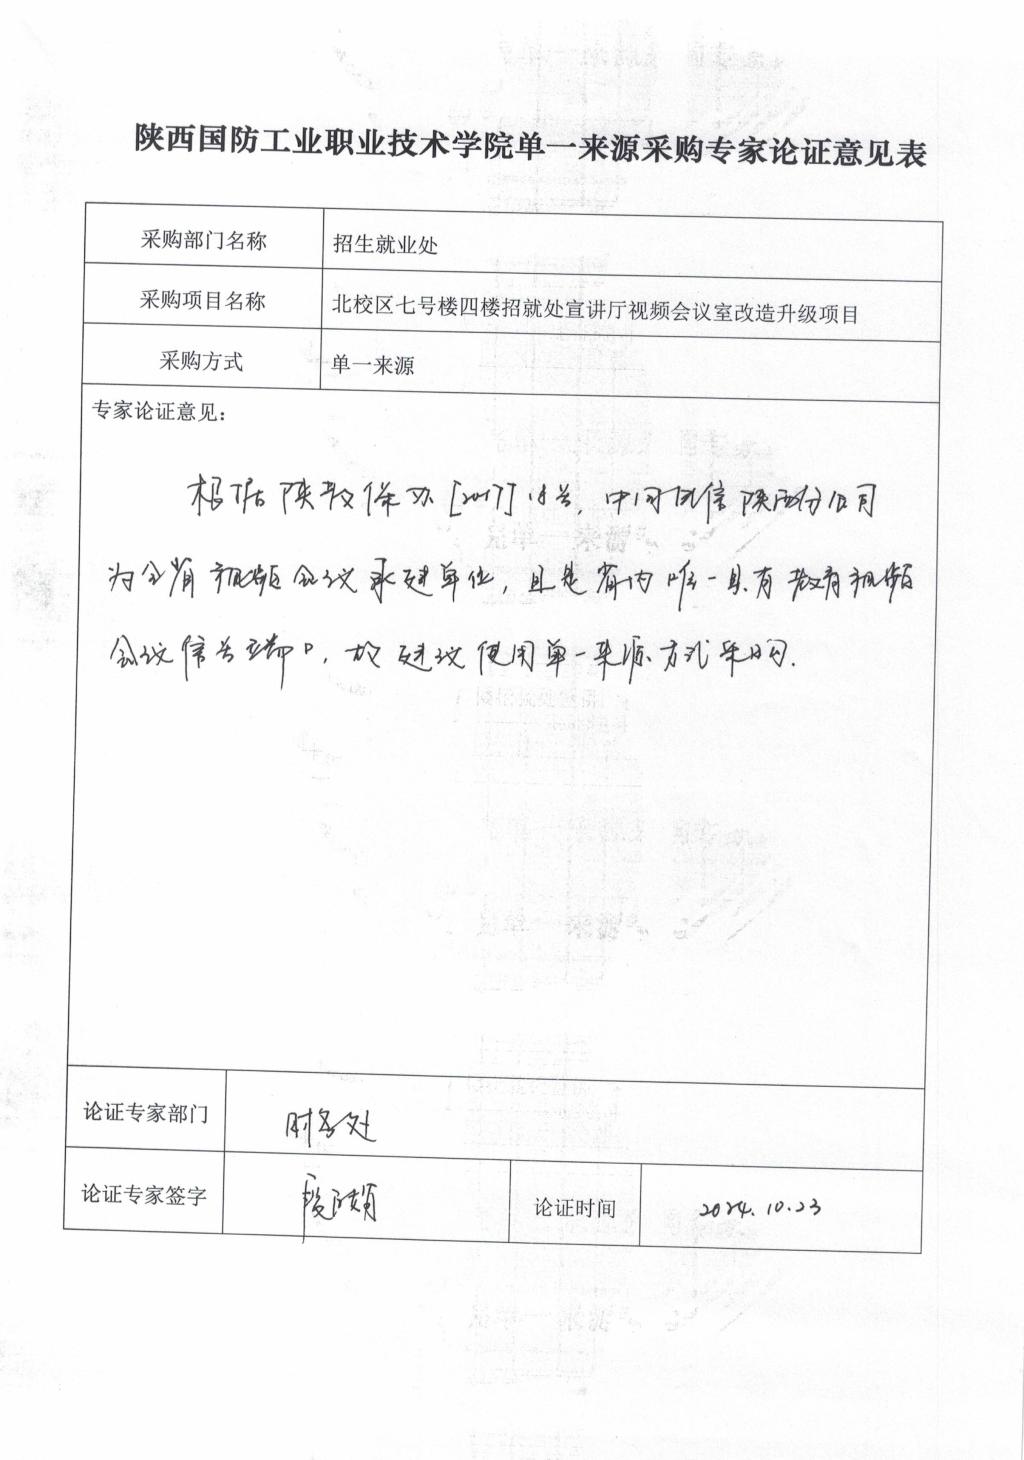 陕西国防工业职业技术学院单一来源采购专家论证意见表
采购部门名称 招生就业处
采购项目名称 北校区七号楼四楼招就处宣讲厅视频会议室改造升级项目
采购方式 单一来源
专家论证意见：
根据陕教保办[2017]18号,中国电信陕西分公司
为全省视频会议承建单位,且是省内唯一具有教育视频
会议信号端口,故建议使用单一来源方式采购.
论证专家部门 财务处
论证专家签字 段 论证时间 2024.10.23